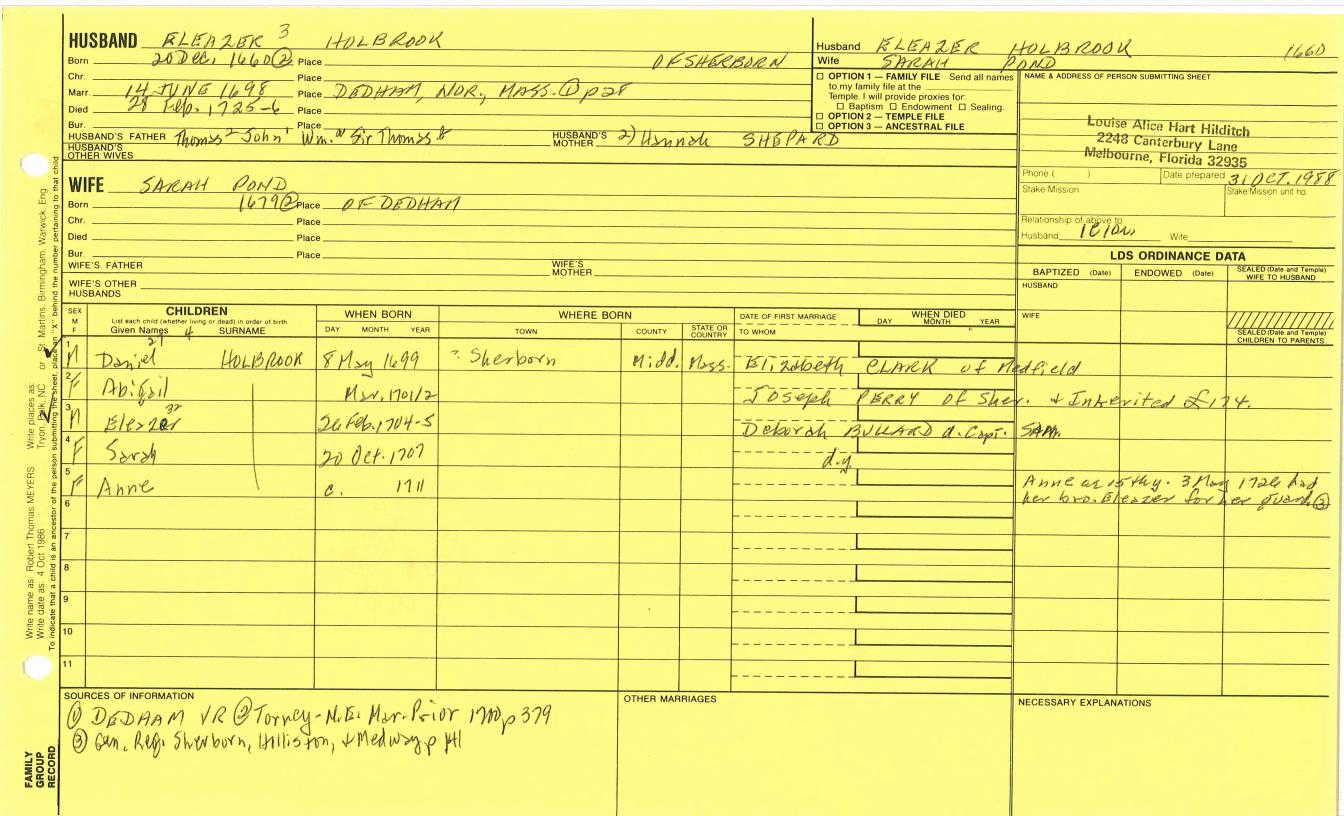 HUSBAND ELEAZER 3 HOLBROOK
Born 20 Dec. 1660 ② Place OF SHERBORN
Chr. Place
Marr. 14 JUNE 1698 Place DEDHAM, NOR., MASS. ① p 28
Died 28 Feb. 1725-6 Place
Bur. Place
HUSBAND'S FATHER Thomas 2 John 1 Wm. a Sir Thomas b HUSBAND'S MOTHER 2) Hannah SHEPARD
HUSBAND'S OTHER WIVES
WIFE SARAH POND
Born 1679 ② Place OF DEDHAM
Chr. Place
Died Place
Bur. Place
WIFE'S FATHER WIFE'S MOTHER
WIFE'S OTHER HUSBANDS
Husband ELEAZER HOLBROOK 1660
Wife SARAH POND
☐ OPTION 1 — FAMILY FILE Send all names
to my family file at the
Temple. I will provide proxies for:
☐ Baptism ☐ Endowment ☐ Sealing.
☐ OPTION 2 — TEMPLE FILE
☐ OPTION 3 — ANCESTRAL FILE
NAME & ADDRESS OF PERSON SUBMITTING SHEET
Louise Alice Hart Hilditch
2248 Canterbury Lane
Melbourne, Florida 32935
Phone ( ) Date prepared 31 OCT. 1988
Stake/Mission Stake/Mission unit no.
Relationship of above to
Husband Wife
LDS ORDINANCE DATA
BAPTIZED (Date) ENDOWED (Date) SEALED (Date and Temple) WIFE TO HUSBAND
HUSBAND
WIFE
SEALED (Date and Temple) CHILDREN TO PARENTS
SEX M F
CHILDREN
List each child (whether living or dead) in order of birth
Given Names 4 SURNAME
WHEN BORN
DAY MONTH YEAR
WHERE BORN
TOWN COUNTY STATE OR COUNTRY
DATE OF FIRST MARRIAGE
TO WHOM
WHEN DIED
DAY MONTH YEAR
1 M Daniel HOLBROOK 8 May 1699 Sherborn Midd. Mass. Elizabeth CLARK of Medfield
2 F Abigail Mar. 1701/2 Joseph PERRY of Sher. + Inherited £174.
3 M Eleazer 32 26 Feb. 1704-5 Deborah BULLARD d. Capt. SAM.
4 F Sarah 20 Oct. 1707 d.y.
5 F Anne c. 1711 Anne 3 May 1726 had
her bro. Eleazer for her guard. ③
6
7
8
9
10
11
SOURCES OF INFORMATION
① DEDHAM VR ② Torrey-N.E. Mar. Prior 1700 p 379
③ Gen. Reg. Sherborn, Holliston, + Medway p 141
OTHER MARRIAGES
NECESSARY EXPLANATIONS
Write name as: Robert Thomas MEYERS Write places as: Tryon, Polk, NC or St. Martins, Birmingham, Warwick, Eng.
Write date as: 4 Oct 1986
To indicate that a child is an ancestor of the person submitting the sheet, place an "X" behind the number pertaining to that child
FAMILY
GROUP
RECORD